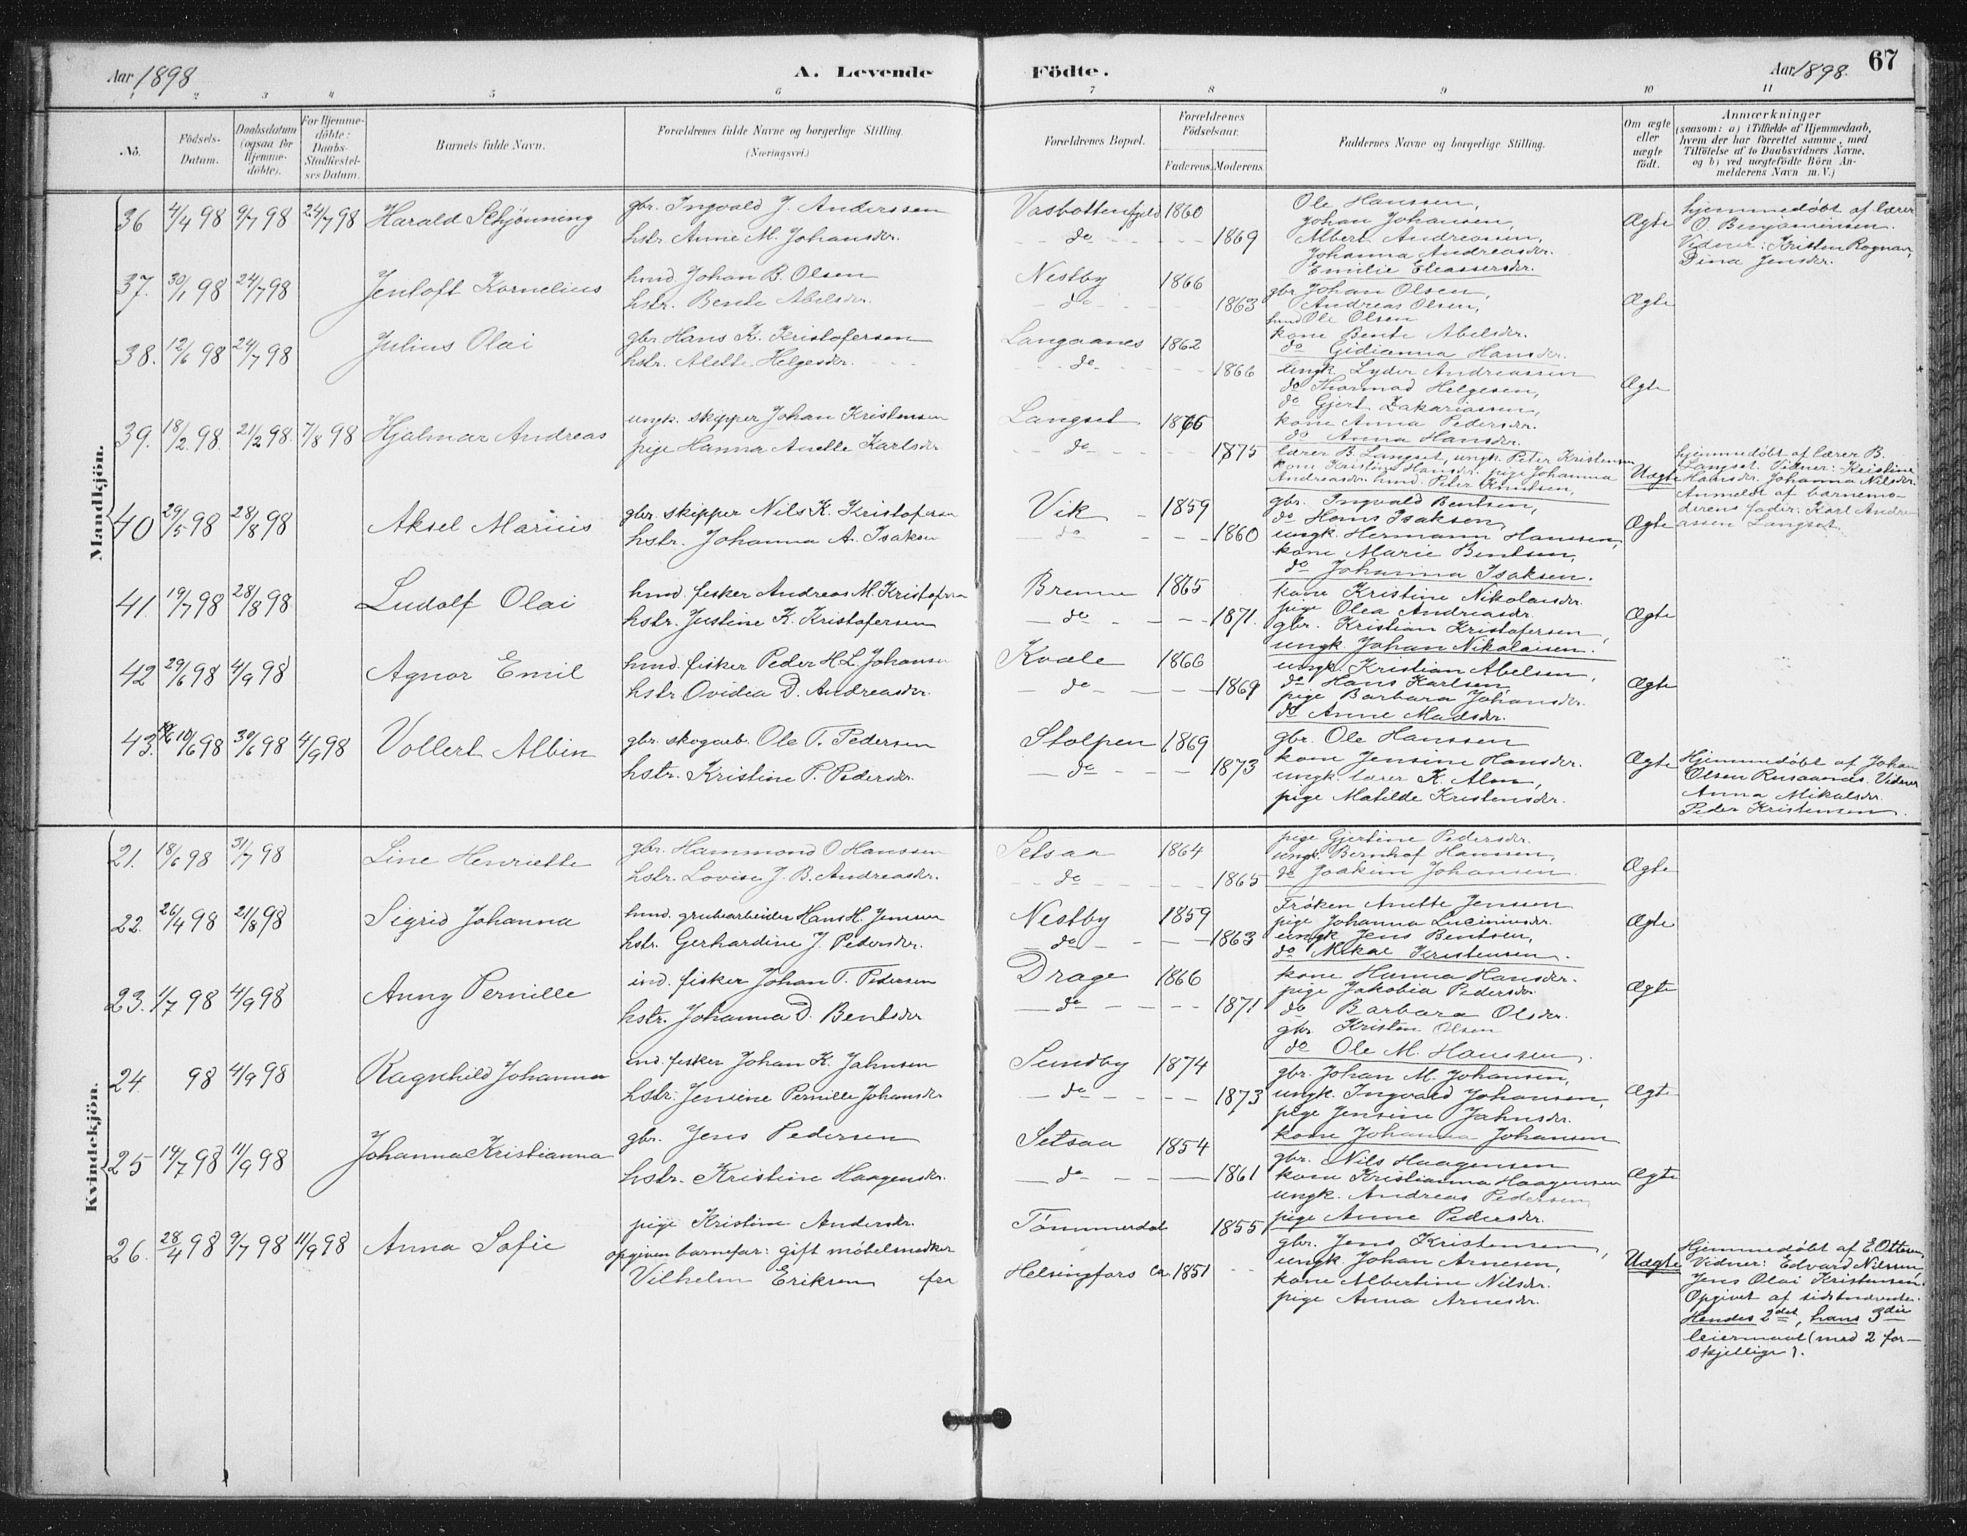 Aar 1898 A. Levende Födte. Aar 1898. 67
1 2 3 4 5 6 7 8 9 10 11
No. Födsels-Datum. Daabsdatum (ogsaa for Hjemme-döbte). For Hjemme-döbte: Daabs-Stadfæstel-ses Datum. Barnets fulde Navn. Forældrenes fulde Navne og borgerlige Stilling. (Næringsvei.) Forældrenes Bopæl. Forældrenes Födselsaar. Faderens. Moderens. Faddernes Navne og borgerlige Stilling. Om ægte eller uægte födt. Anmærkninger (saasom: a) i Tilfælde af Hjemmedaab, hvem der har forrettet samme, med Tilföielse af to Daabsvidners Navne, og b) ved uægtefödte Börn An-melderens Navn m. V.)
Mandkjön.
36 4/4 98 9/7 98 24/7 98 Harald Schjönning
gbr. Ingvald J. Anderssen
hstr. Anne M. Johansdr.
Vasbottenfjeld 1860
do 1869
Ole Hanssen,
Johan Johansen,
Albert Andreassen,
Johanna Andreasdr.
Emilie Eleassersdr.
Ægte
hjemmedøbt af lærer
O. Benjaminsen.
Vidner: Kristen Rognan,
Dina Jensdr.
37. 30/1 98 24/7 98 Jentoft Kornelius
hmd. Johan B. Olsen
hstr. Bente Abelsdr.
Nestby 1866
do 1863
gbr. Johan Olsen,
Andreas Olsen,
hmd Ole Olsen
kone Bente Abelsdr.
do Gidianna Hansdr.
Ægte
38. 12/6 98 24/7 98 Julius Olai
gbr. Hans K. Kristofersen
hstr. Alette Helgesdr.
Langaanes 1862
do 1866
ungk. Lyder Andreassen
do Thormod Helgesen,
do Gjert Zakariassen,
kone Anna Pedersdr.
do Anna Hansdr.
Ægte
39. 18/2 98. 21/2 98. 7/8 98 Hjalmar Andreas
ungk. skipper Johan Kristensen
pige Hanna Anette Karlsdr
Langset 1876
do 1875
lærer B. Langset, ungk. Peter Kristensen
kone Kristine Hansdr. pige Johanna
Andreasdr. hmd. Peter Knutsen,
Uægte
hjemmedøbt af lærer B.
Langset. Vidner: Kristine
Hansdr. Johanna Nilsdr.
Anmeldt af barnemo-
derens fader: Karl Andre-
assen Langset.
40 29/5 98 28/8 98 Aksel Marius
gbr. skipper Nils K. Kristofersen
hstr. Johanna A. Isaksen
Vik 1859
do 1860
gbr. Ingvald Bentsen,
do Hans Isaksen,
ungk. Hermann Hanssen,
kone Marie Bentsen,
do Johanna Isaksen.
Ægte
41. 19/7 98 28/8 98 Ludolf Olai
hmd. fisker Andreas M. Kristofersen
hstr. Justine K. Kristofersen
Brenne 1865
do 1871.
kone Kristine Nikolaisdr.
pige Olea Andreasdr
gbr. Kristian Kristofersen,
ungk. Johan Nikolaisen.
Ægte
42 29/6 98 4/9 98 Agnor Emil
hmd. fisker Peder H. L. Johansen
hstr Ovidia D. Andreasdr.
Kvæle 1866
do 1869
ungk. Kristian Abelsen,
do Hans Karlsen,
pige Barbara Johansdr.
do Anne Madsdr.
Ægte
43. 10/6 98 30/6 98 4/9 98 Vollert Albin
gbr. skogarb. Ole T. Pedersen
hstr. Kristine P. Pedersdr.
Stolpen 1869
do 1873
gbr. Ole Hanssen
kone Jensine Hansdr.
ungk. lærer K. Alm,
pige Matilde Kristensdr.
Ægte
Hjemmedøbt af Johan
Olsen Rusaanes. Vidner
Anna Mikalsdr.
Peder Kristensen.
Kvindekjön.
21. 18/6 98 31/7 98 Line Henriette
gbr. Hammond O Hanssen
hstr. Lovise J. B. Andreasdr.
Setsaa 1864
do 1865
pige Gjertine Pedersdr.
ungk. Bernhof Hanssen,
do Joakim Johansen.
Ægte
22. 26/4 98 21/8 98 Sigrid Johanna
hmd. grubearbeider Hans H. Jenssen
hstr. Gerhardine J. Pedersdr.
Nestby 1859
do 1863
Frøken Anette Jenssen
pige Johanna Luciniusdr.
ungk Jens Bentsen,
do Mikal Kristensen.
Ægte
23. 1/7 98 4/9 98 Anny Pernille
ind. fisker Johan T. Pedersen
hstr. Johanna D. Bentsdr
Drage 1866
do 1871
kone Hanna Hansdr.
pige Jakobia Pedersdr.
do Barbara Olsdr.
gbr. Kristen Olsen
do Ole M. Hanssen.
Ægte
24 98 4/9 98 Ragnhild Johanna
ind. fisker Johan K. Jahnsen
hstr. Jensine Pernille Johansdr
Sundby 1874
do 1873
gbr. Johan M. Johansen,
ungk. Ingvard Johansen,
pige Jensine Jahnsdr.
kone Johanna Johansen
Ægte
25 14/7 98 11/9 98 Johanna Kristianna
gbr. Jens Pedersen
hstr. Kristine Haagensdr.
Setsaa 1854
do 1861
gbr. Nils Haagensen
kone Kristianna Haagensen
ungk. Andreas Pedersen
pige Anne Pedersdr.
Ægte
26. 28/4 98 9/7 98 11/9 98 Anna Sofie
pige Kristine Andersdr.
opgiven barnefar: gift møbelsnedker
Vilhelm Eriksen fra
Tømmerdal 1855
Helsingfors ca. 1851
gbr. Jens Kristensen,
ungk Johan Arnesen,
kone Albertine Nilsdr.
pige Anna Arnesdr.
Uægte
Hjemmedøbt af E. Ottesen,
Vidner: Edvard Nilssen,
Jens Olai Kristensen.
Opgivet af sidstnævnte.
Hendes 2det, hans 3die
leiermaal (med 2 for-
skjellige).